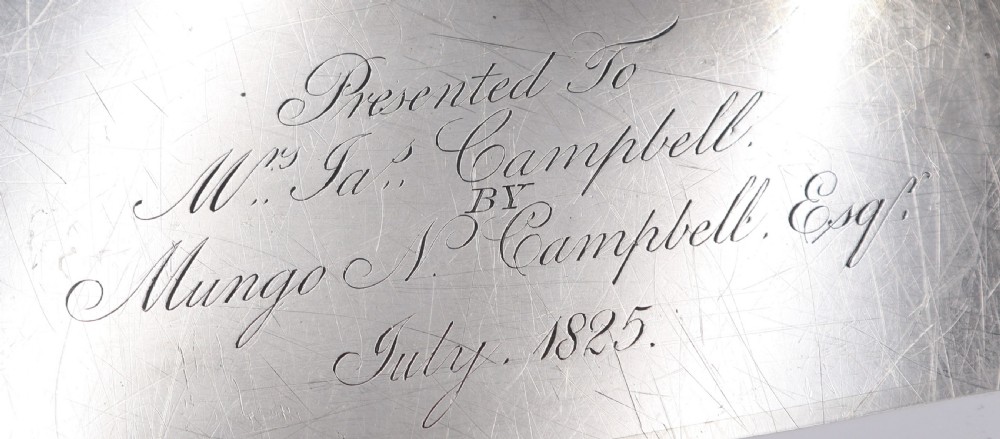 Presented To
Mrs. Jas. Campbell.
BY
Mungo N. Campbell. Esqr.
July. 1825.